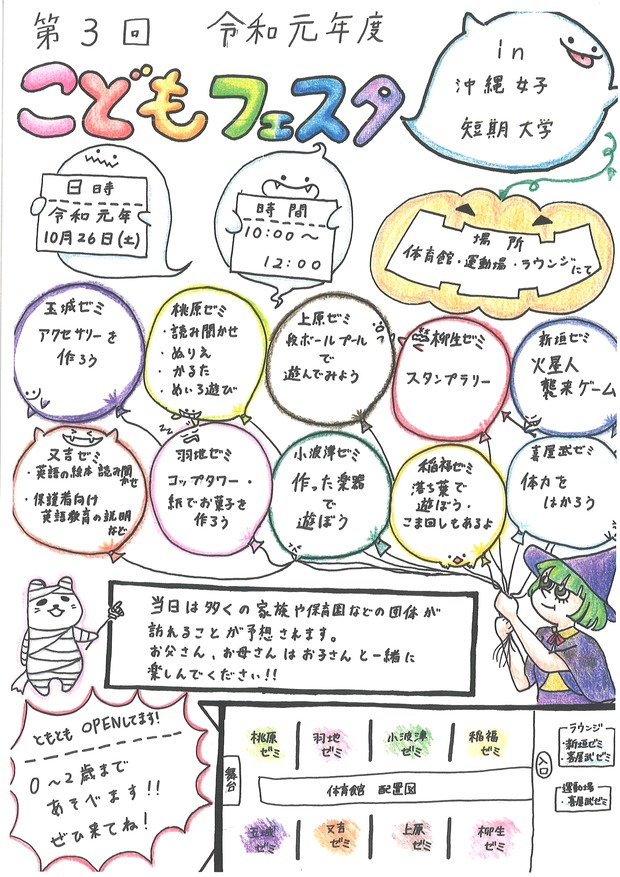 第3回 令和元年度
こどもフェスタ
in
沖縄女子
短期大学
日時
令和元年
10月26日(土)
時間
10:00～
12:00
場所
体育館・運動場・ラウンジにて
玉城ゼミ
アクセサリーを
作ろう
桃原ゼミ
・読み聞かせ
・ぬりえ
・かるた
・めいろ遊び
上原ゼミ
段ボールプール
で
遊んでみよう
柳生ゼミ
スタンプラリー
新垣ゼミ
火星人
襲来ゲーム
又吉ゼミ
・英語の絵本読み聞
かせ
・保護者向け
英語教育の説明
など
羽地ゼミ
コップタワー・
紙でお菓子を
作ろう
小波津ゼミ
作った楽器
で
遊ぼう
稲福ゼミ
落ち葉で
遊ぼう・
こま回しもあるよ
喜屋武ゼミ
体力を
はかろう
当日は多くの家族や保育園などの団体が
訪れることが予想されます。
お父さん、お母さんはお子さんと一緒に
楽しんでください!!
ともとも OPENしてます!
0～2歳まで
あそべます!!
ぜひ来てね!
桃原
ゼミ
羽地
ゼミ
小波津
ゼミ
稲福
ゼミ
舞台
体育館 配置図
入口
玉城
ゼミ
又吉
ゼミ
上原
ゼミ
柳生
ゼミ
ラウンジ
・新垣ゼミ
・喜屋武ゼミ
運動場
・喜屋武ゼミ